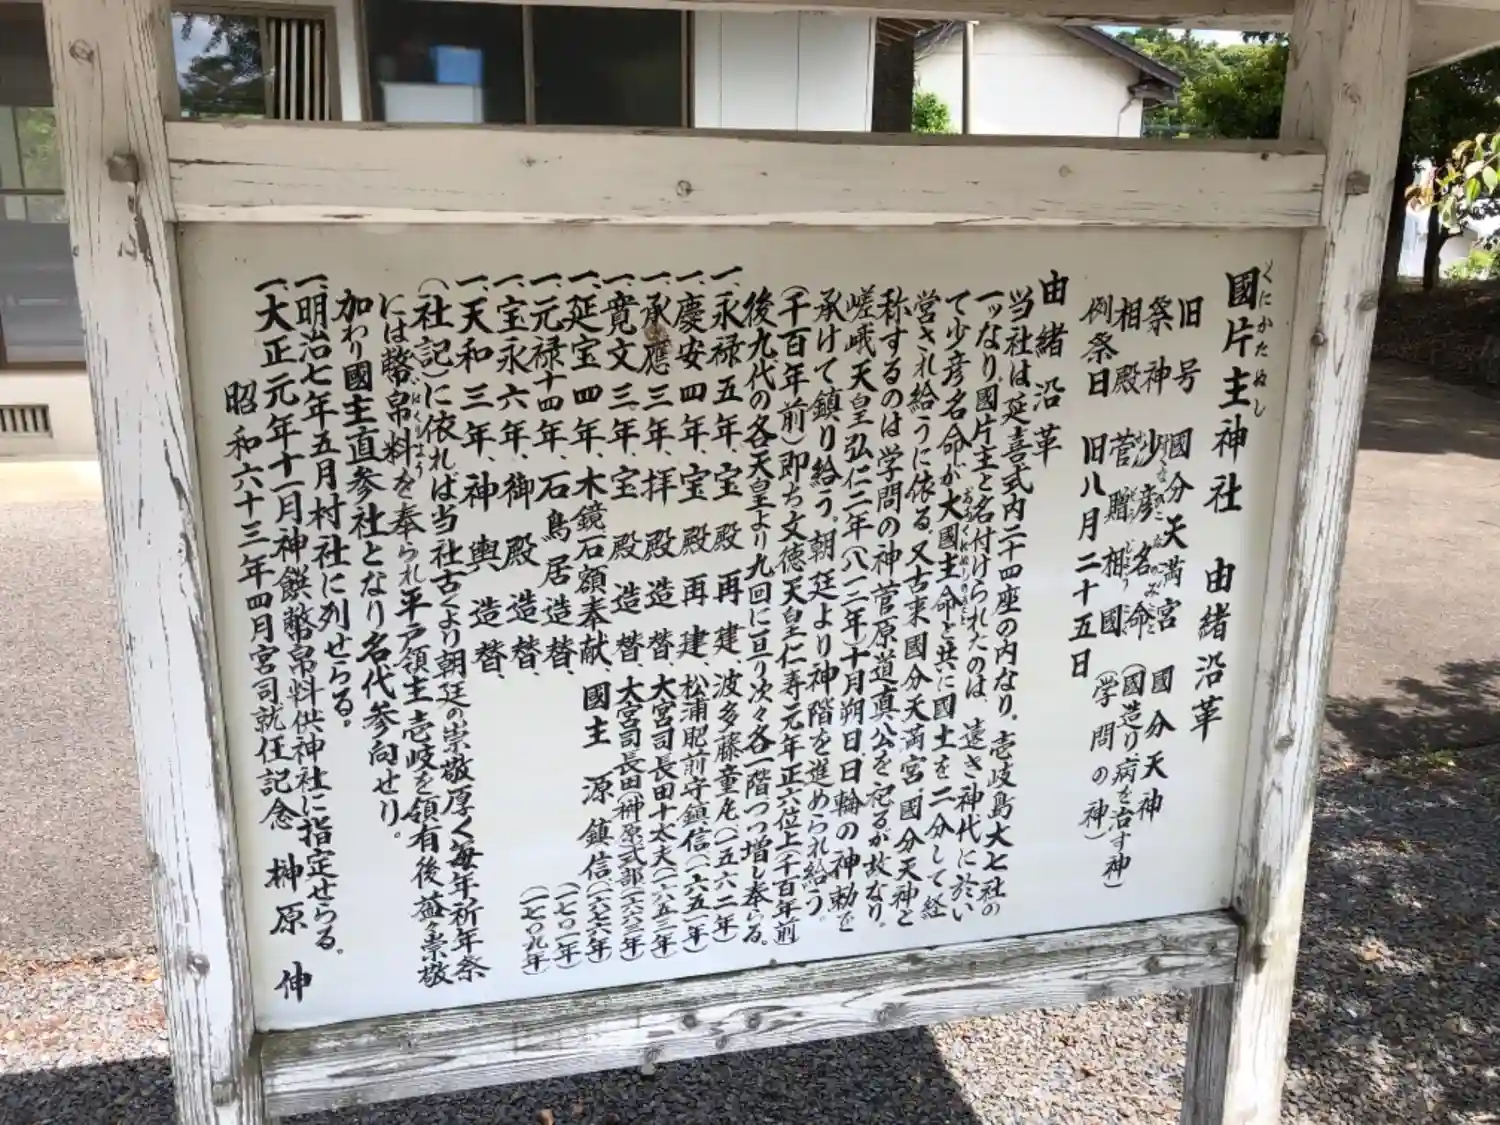 國片主神社　由緒沿革
くにかたぬし
旧号　國分天満宮　國分天神
祭神　少彦名命（國造り病を治す神）
すくなひこなのみこと
相殿　菅贈相國（学問の神）
かんぞうしょうこく
例祭日　旧八月二十五日
由緒沿革
当社は延喜式内二十四座の内なり。壱岐島大七社の
一ツなり。國片主と名付けられたのは、遠き神代に於い
て少彦名命が大國主命と共に國土を二分して経
おおくにぬしのみこと
営され給うに依る。又古来國分天満宮、國分天神と
称するのは学問の神菅原道真公を祀るが故なり。
嵯峨天皇弘仁二年（八一二年）十月朔日日輪の神勅を
承けて鎮り給う。朝廷より神階を進められ給う。
（千百年前）即ち文徳天皇仁寿元年正六位上（千百年前
後九代の各天皇より九回に亘り次々各一階づつ増し奉らる。
一、永禄五年、宝殿再建、波多藤童丸（一五六二年）
一、慶安四年、宝殿再建、松浦肥前守鎮信（一六五一年）
一、承應三年、拝殿造替、大宮司長田十太夫（一六五二年）
一、寛文三年、宝殿造替、大宮司長田（榊原式部（一六六三年）
一、延宝四年、木鏡石額奉献、國主　源鎮信（一六七六年）
一、元禄十四年、石鳥居造替、（一七〇一年）
一、宝永六年、御殿造替、（一七〇九年）
一、天和三年、神輿造替、
（社記）に依れば当社古くより朝廷の崇敬厚く毎年祈年祭
には幣帛料を奉られ平戸領主壱岐を領有後益々崇敬
はくりょう
加わり國主直参社となり名代参向せり。
一、明治七年五月村社に列せらる。
一、大正元年十一月神饌幣帛料供神社に指定せらる。
昭和六十三年四月宮司就任記念　榊原　伸